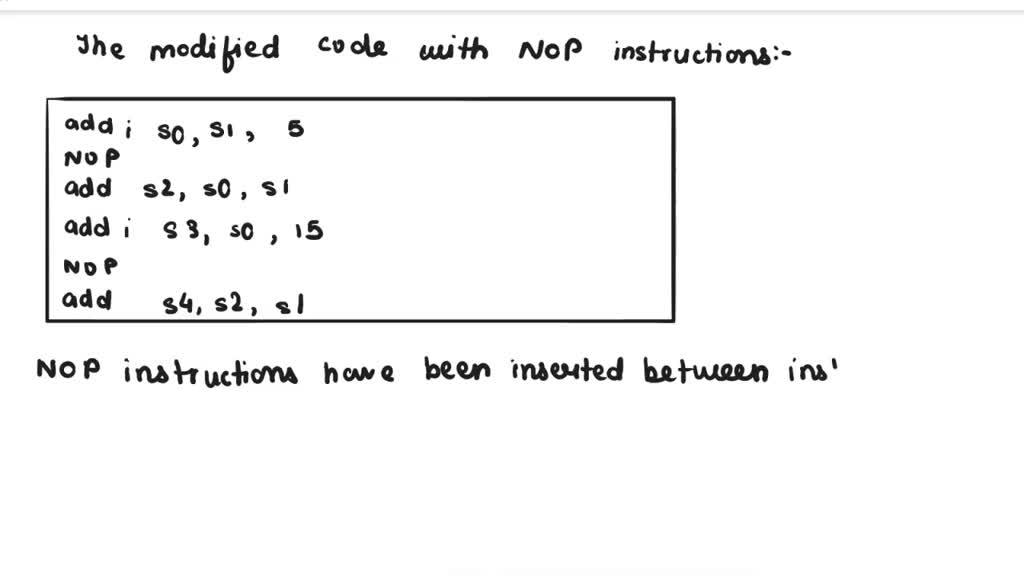 The modified code with NOP instructions:-
addi s0, s1, 5
NOP
add s2, s0, s1
addi s3, s0, 15
NOP
add s4, s2, s1
NOP instructions have been inserted between ins'